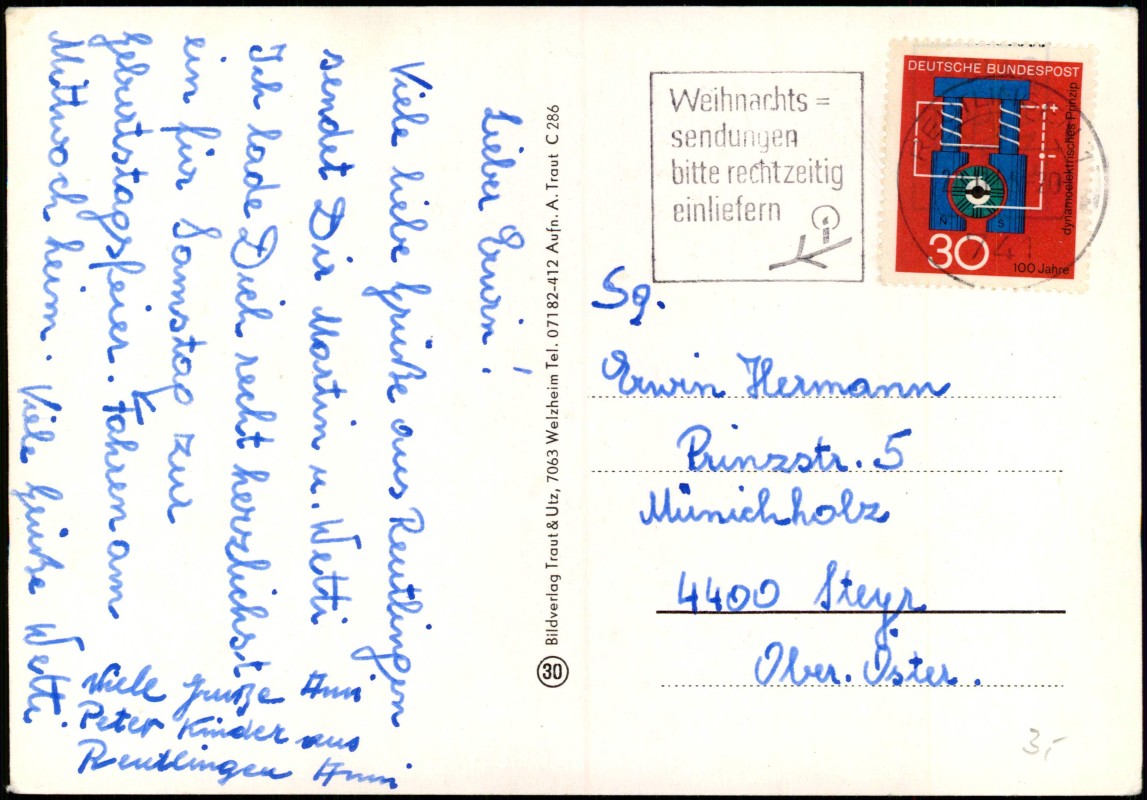 Lieber Erwin!
Viele liebe Grüße aus Reutlingen
sendet Dir Martin u. Wetti
Ich lade Dich recht herzlichst
ein für Somstag zur
Geburtstagsfeier. Fahren am
Mittwoch heim. Viele Grüße Wetti.
Viele Grüße Anni
Peter Kinder aus
Reutlingen Anni
Bildverlag Traut & Utz, 7063 Welzheim Tel. 07182-412 Aufn. A. Traut C 286
30
Weihnachts=
sendungen
bitte rechtzeitig
einliefern
DEUTSCHE BUNDESPOST
dynamoelektrisches Prinzip
N S
30
100 Jahre
741
Sg.
Erwin Hermann
Prinzstr. 5
Münichholz
4400 Steyr
Ober. Öster.
3,-